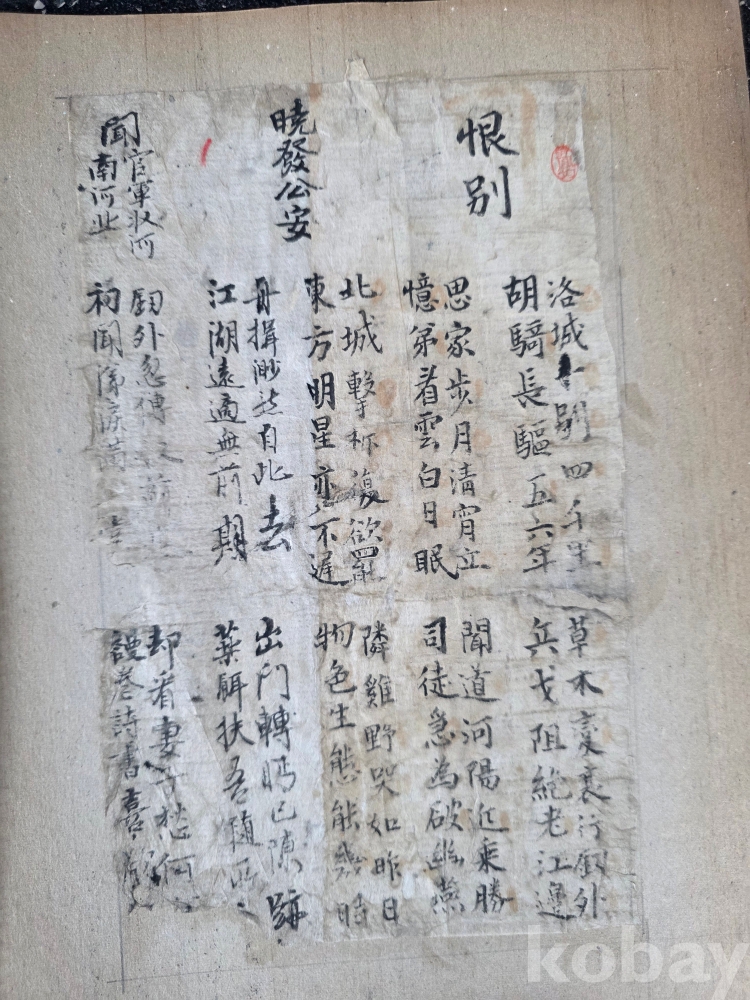 恨別
洛城一別四千里
胡騎長驅五六年
草木變衰行釖外
兵戈阻絶老江邊
思家步月清宵立
憶弟看雲白日眠
聞道河陽近乘勝
司徒急為破幽燕
曉發公安
北城擊柝復欲罷
東方明星亦不遲
隣雞野哭如昨日
物色生態能幾時
舟揖渺然自此去
江湖遠適無前期
出門轉眄已陳跡
藥餌扶吾隨所
聞官軍收河
南河北
釖外忽傳收薊
初聞涕淚滿
却看妻子愁何
謾卷詩書喜欲
kobay